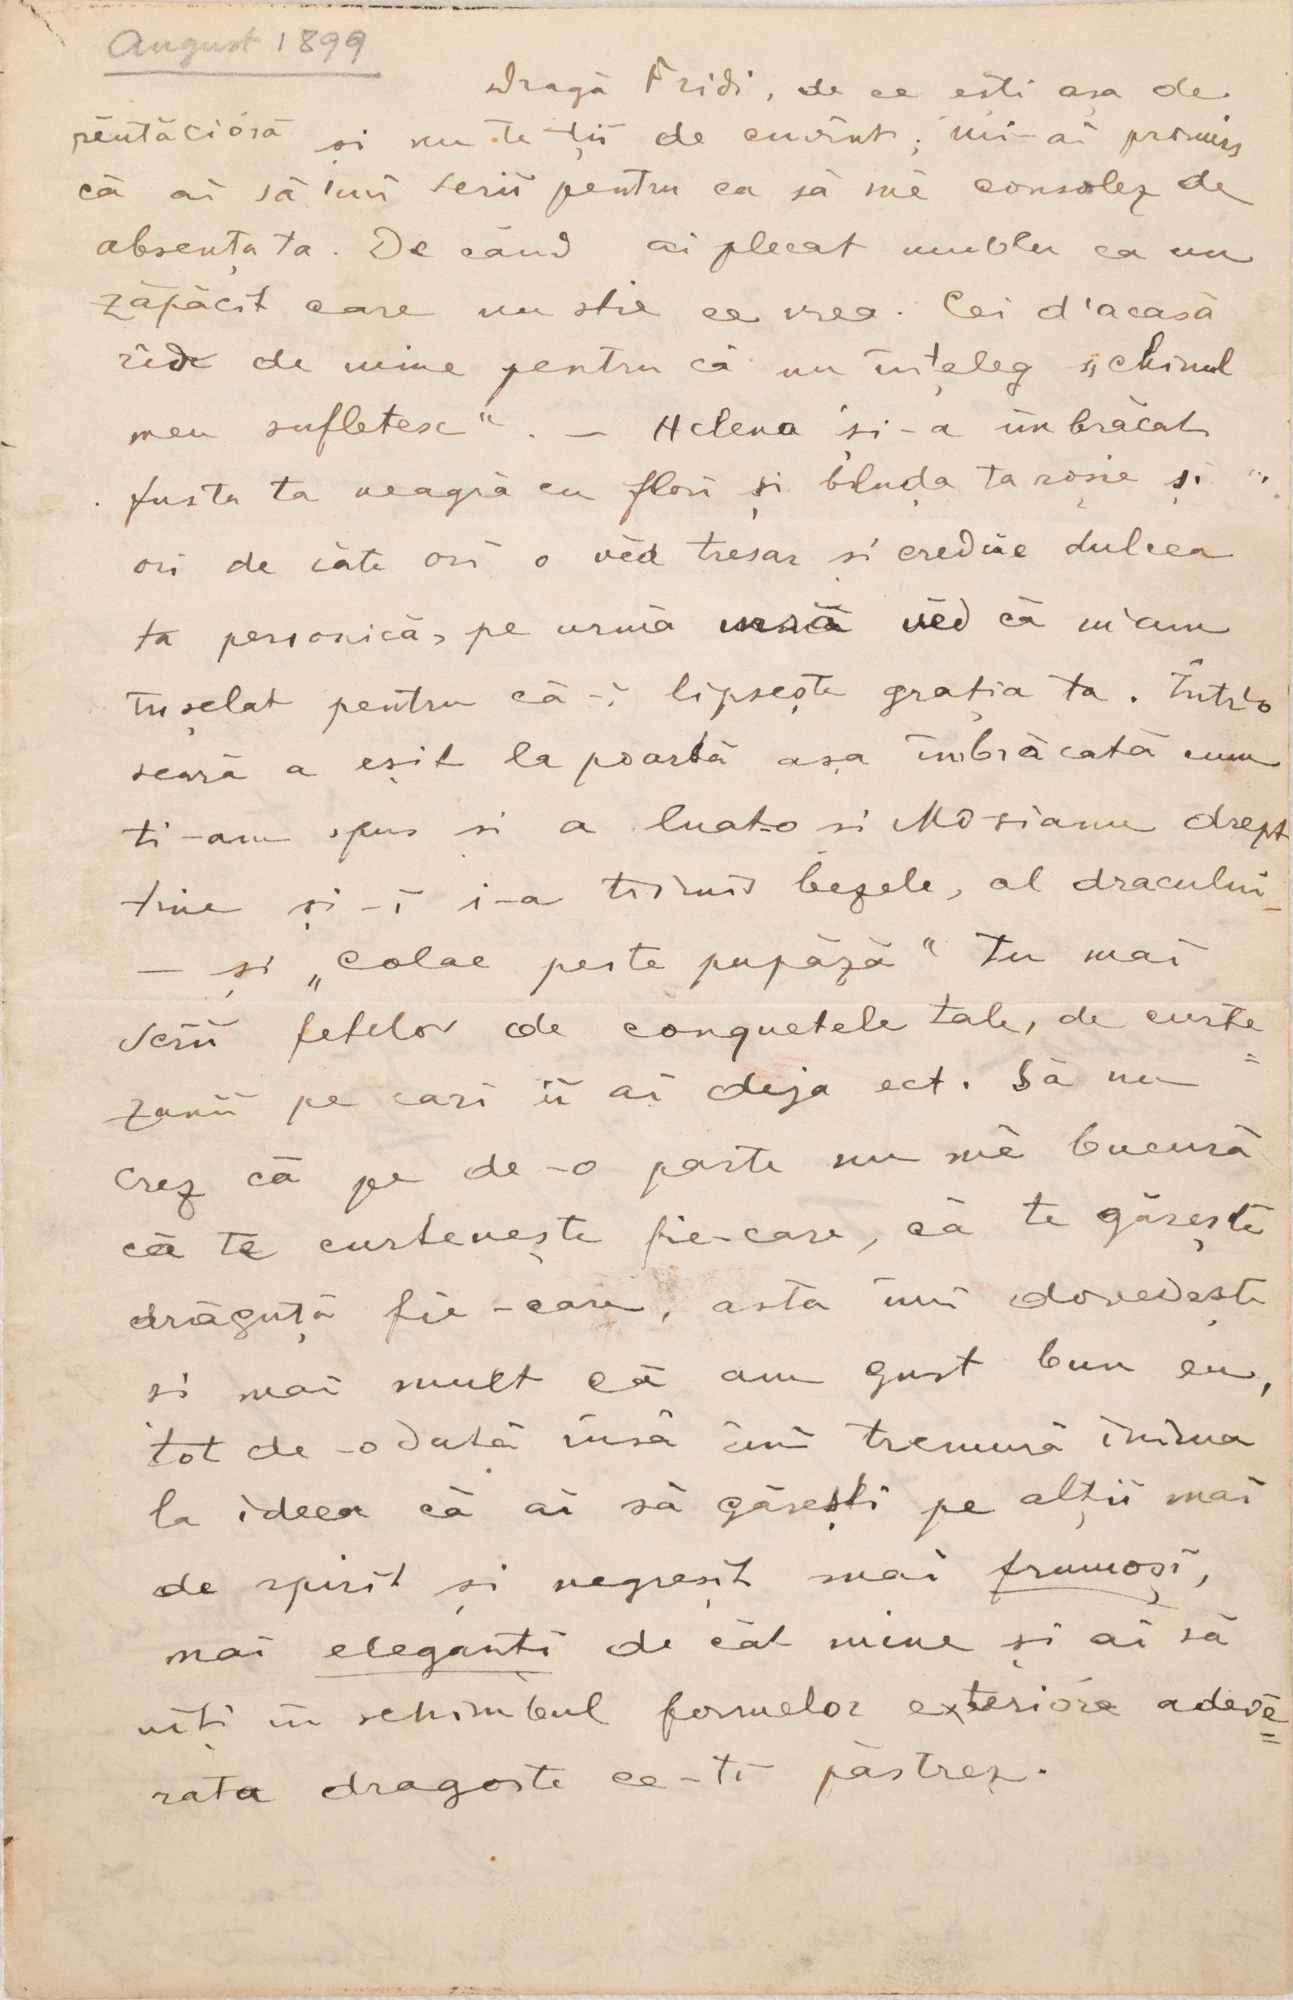 August 1899
Dragă Fridi, de ce ești așa de
rĕutăciósă și nu te ții de cuvînt; mi-ai promis
că ai să'mi scrii pentru ca să mĕ consolez de
absența ta. De când ai plecat umblu ca un
zăpăcit care nu stie ce vrea. Cei d'acasă
rîde de mine pentru că nu înțeleg „chinul
meu sufletesc". — Helena și-a îmbrăcat
fusta ta neagră cu flori și bluda ta roșie și
ori de câte ori o vĕd tresar și
dulcea
ta personică, pe urmă însă vĕd că m'am
înșelat pentru că-i lipsește grația ta. Într'o
seară a eșit la poartă așa îmbrăcată cum
ti-am spus si a luat-o si
drept
tine și-i i-a trimis bezele, al dracului_
— și „colac peste pupăză" tu mai
scrii fetelor de conquetele tale, de curte=
zanii pe cari îi ai deja ect. Să nu
crez că pe de-o parte nu mĕ bucură
că te curtenește fie-care, că te găsește
drăguță fie-care, asta îmi dovedește
si mai mult că am gust bun eu,
tot de-odată însă îmi tremură inima
la ideea că ai să găsești pe alții mai
de spirit și negreșit mai frumoși,
mai eleganti de cât mine și ai să
uiți în schimbul formelor exterióre adevĕ=
rata dragoste ce-ti păstrez.